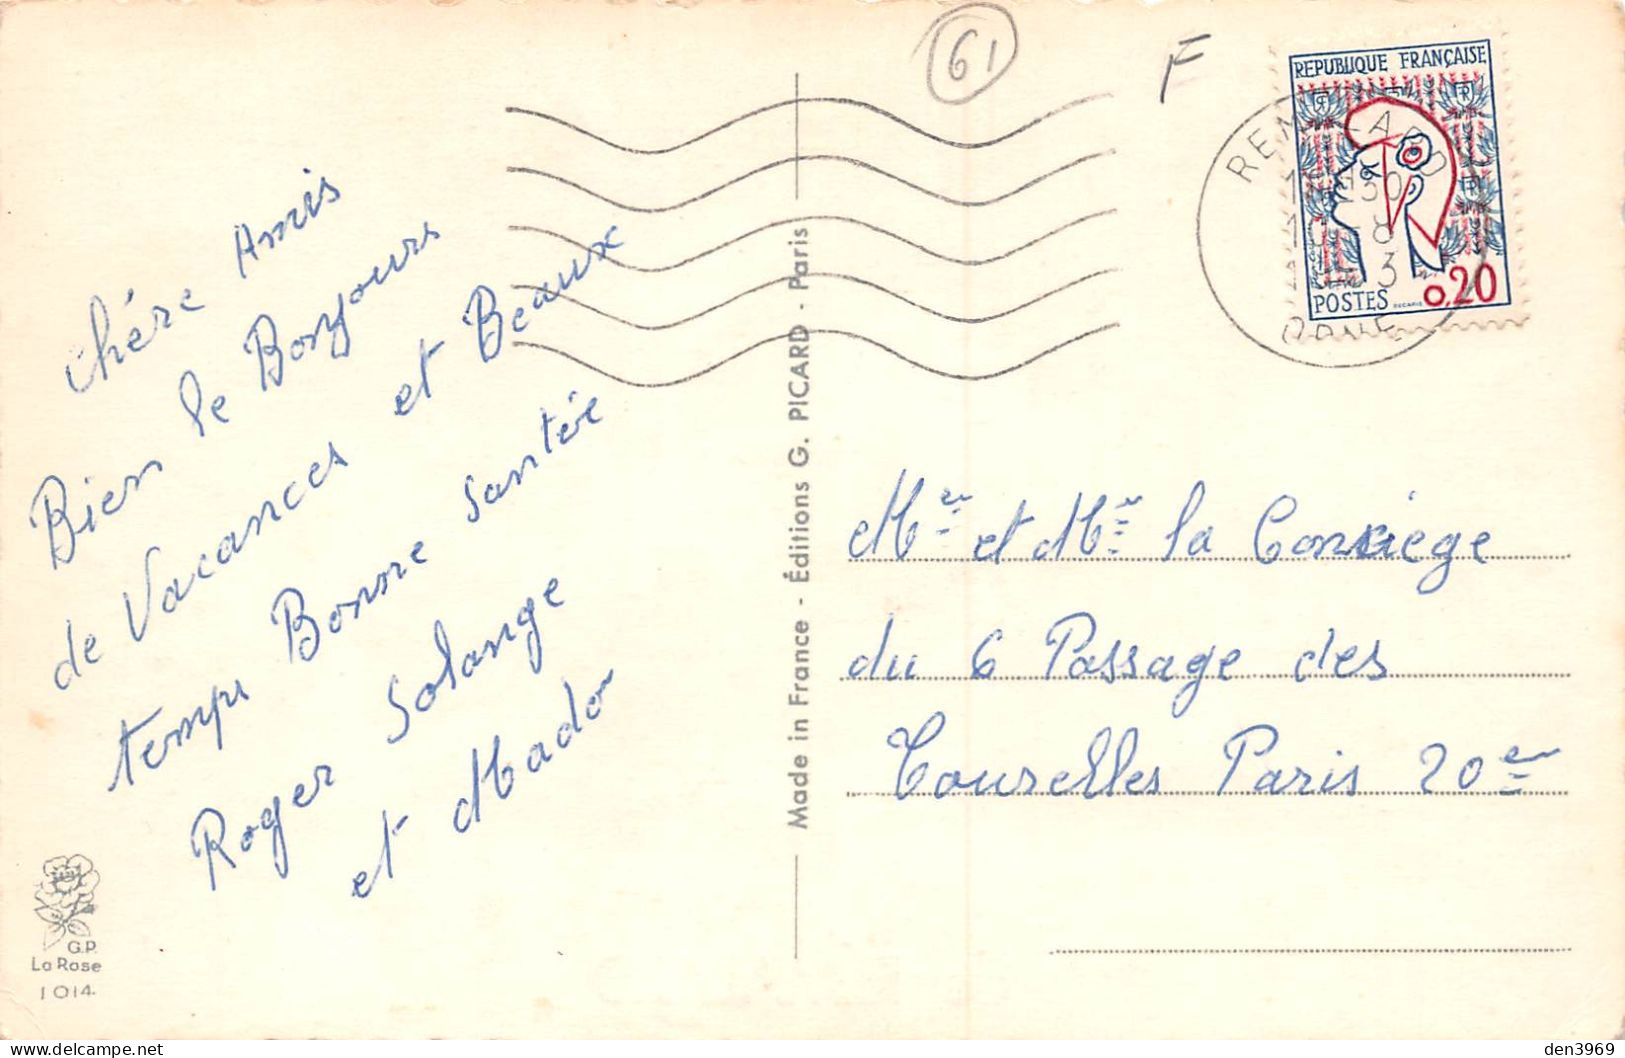 61
F
REPUBLIQUE FRANÇAISE
POSTES
0,20
ORNE
chére Amis
Bien le Bonjours
de Vacances et Beaux
temps Bonne Santée
Roger Solange
et Mado
Made in France - Éditions G. PICARD - Paris
Mer et Mr la Conciege
du 6 Passage des
Tourelles Paris 20e
G.P.
La Rose
1014
den3969